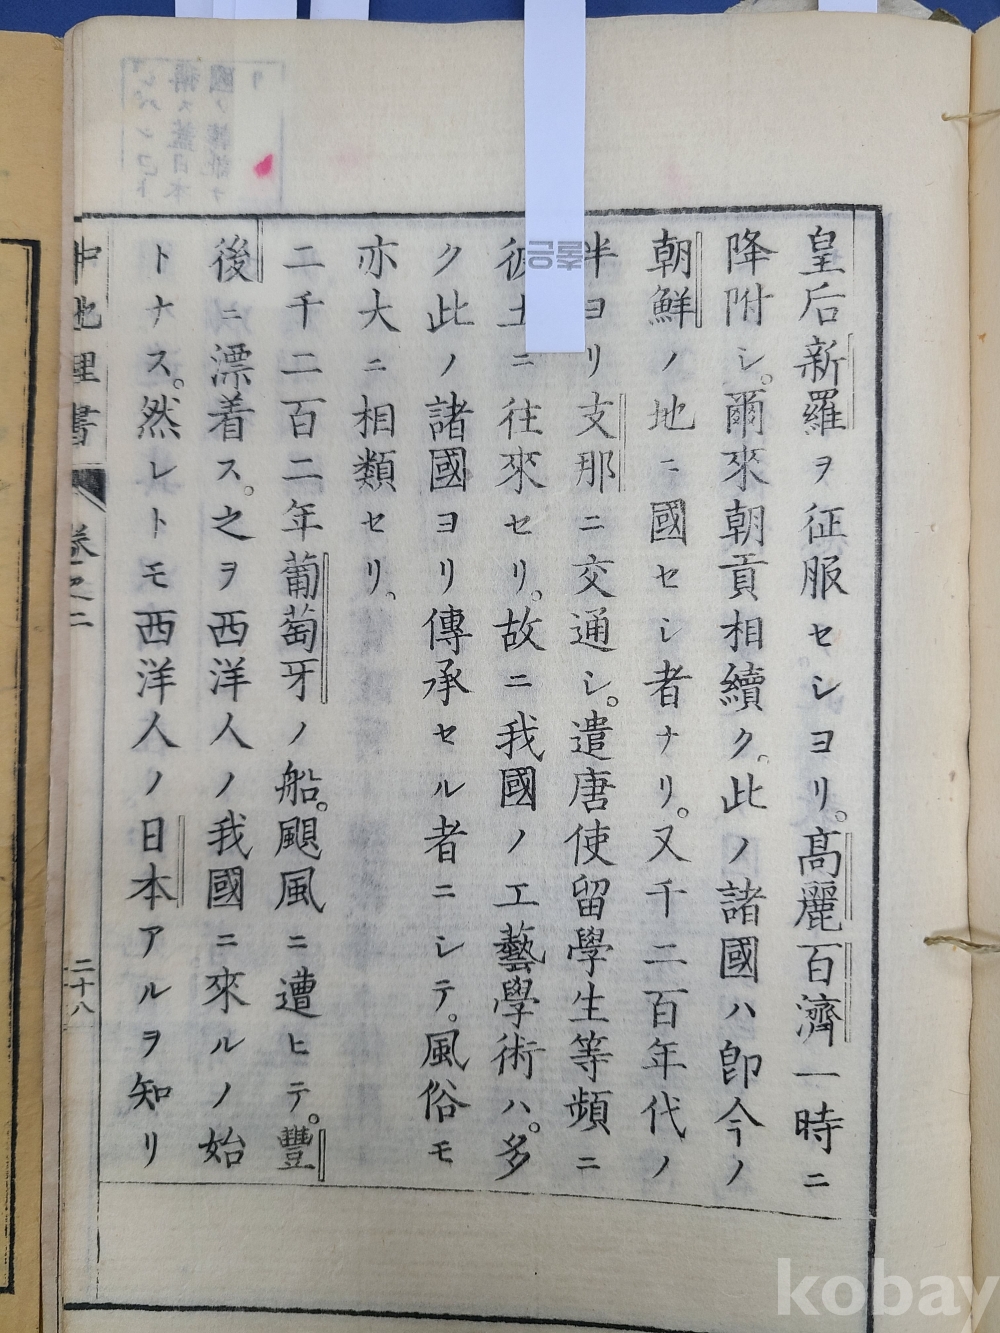 皇后新羅ヲ征服セシヨリ。高麗百濟一時ニ
降附シ。爾來朝貢相續ク。此ノ諸國ハ卽今ノ
朝鮮ノ地ニ國セシ者ナリ。又千二百年代ノ
半ヨリ支那ニ交通シ。遣唐使留學生等頻ニ
彼土ニ往來セリ。故ニ我國ノ工藝學術ハ。多
ク此ノ諸國ヨリ傳承セル者ニシテ。風俗モ
亦大ニ相類セリ。
二千二百二年葡萄牙ノ船。颶風ニ遭ヒテ。豐
後ニ漂着ス。之ヲ西洋人ノ我國ニ來ルノ始
トナス。然レトモ西洋人ノ日本アルヲ知リ
地理書 卷之二 二十八
좋은
kobay